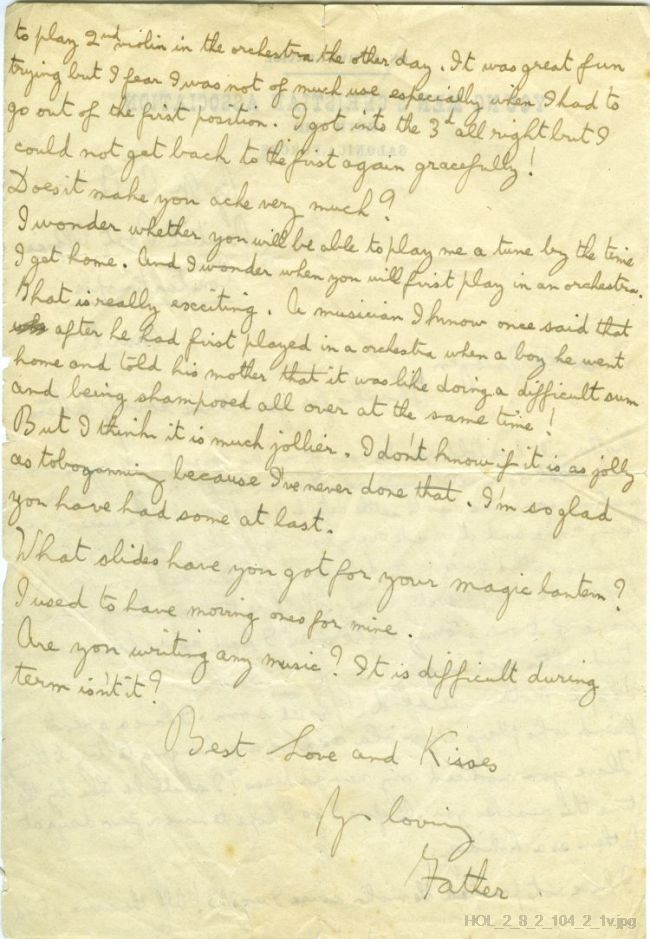 to play 2nd violin in the orchestra the other day. It was great fun
trying but I fear I was not of much use especially when I had to
go out of the first position. I got into the 3d all right but I
could not get back to the first again gracefully!
Does it make you ache very much?
I wonder whether you will be able to play me a tune by the time
I get home. And I wonder when you will first play in an orchestra.
That is really exciting. A musician I know once said that
after he had first played in a orchestra when a boy he went
home and told his mother that it was like doing a difficult sum
and being shampooed all over at the same time!
But I think it is much jollier. I don't know if it is as jolly
as toboganning because I've never done that. I'm so glad
you have had some at last.
What slides have you got for your magic lantern?
I used to have moving ones for mine.
Are you writing any music? It is difficult during
term isn't it?
Best Love and Kisses
Yr loving
Father.
HOL_2_8_2_104_2_1v.jpg